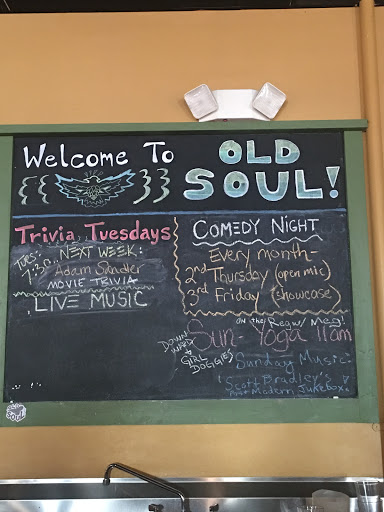 Welcome To
OLD
SOUL!
Trivia Tuesdays
TUES:
NEXT WEEK:
Adam Sandler
MOVIE TRIVIA
LIVE MUSIC
COMEDY NIGHT
Every month-
2nd Thursday (open mic)
3rd Friday (showcase)
on the Reg w/ Meg!
Sun- Yoga 11am
DOWN
WARD
GIRL
DOGGIES
Sunday Music:
Scott Bradley's
Post Modern Jukebox